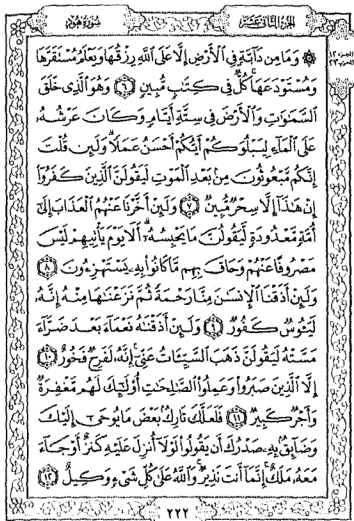 الجزء الثاني عشر
سورة هود
۞ وَمَا مِن دَآبَّةٍ فِي ٱلْأَرْضِ إِلَّا عَلَى ٱللَّهِ رِزْقُهَا وَيَعْلَمُ مُسْتَقَرَّهَا
وَمُسْتَوْدَعَهَا ۚ كُلٌّ فِي كِتَٰبٍ مُّبِينٍ ٦ وَهُوَ ٱلَّذِي خَلَقَ
ٱلسَّمَٰوَٰتِ وَٱلْأَرْضَ فِي سِتَّةِ أَيَّامٍ وَكَانَ عَرْشُهُۥ
عَلَى ٱلْمَآءِ لِيَبْلُوَكُمْ أَيُّكُمْ أَحْسَنُ عَمَلًا ۗ وَلَئِن قُلْتَ
إِنَّكُم مَّبْعُوثُونَ مِنۢ بَعْدِ ٱلْمَوْتِ لَيَقُولَنَّ ٱلَّذِينَ كَفَرُوٓا۟
إِنْ هَٰذَآ إِلَّا سِحْرٌ مُّبِينٌ ٧ وَلَئِنْ أَخَّرْنَا عَنْهُمُ ٱلْعَذَابَ إِلَىٰٓ
أُمَّةٍ مَّعْدُودَةٍ لَّيَقُولُنَّ مَا يَحْبِسُهُۥٓ ۗ أَلَا يَوْمَ يَأْتِيهِمْ لَيْسَ
مَصْرُوفًا عَنْهُمْ وَحَاقَ بِهِم مَّا كَانُوا۟ بِهِۦ يَسْتَهْزِءُونَ ٨
وَلَئِنْ أَذَقْنَا ٱلْإِنسَٰنَ مِنَّا رَحْمَةً ثُمَّ نَزَعْنَٰهَا مِنْهُ إِنَّهُۥ
لَيَـُٔوسٌ كَفُورٌ ٩ وَلَئِنْ أَذَقْنَٰهُ نَعْمَآءَ بَعْدَ ضَرَّآءَ
مَسَّتْهُ لَيَقُولَنَّ ذَهَبَ ٱلسَّيِّـَٔاتُ عَنِّيٓ ۚ إِنَّهُۥ لَفَرِحٌ فَخُورٌ ١٠
إِلَّا ٱلَّذِينَ صَبَرُوا۟ وَعَمِلُوا۟ ٱلصَّٰلِحَٰتِ أُو۟لَٰٓئِكَ لَهُم مَّغْفِرَةٌ
وَأَجْرٌ كَبِيرٌ ١١ فَلَعَلَّكَ تَارِكٌۢ بَعْضَ مَا يُوحَىٰٓ إِلَيْكَ
وَضَآئِقٌۢ بِهِۦ صَدْرُكَ أَن يَقُولُوا۟ لَوْلَآ أُنزِلَ عَلَيْهِ كَنزٌ أَوْ جَآءَ
مَعَهُۥ مَلَكٌ ۚ إِنَّمَآ أَنتَ نَذِيرٌ ۚ وَٱللَّهُ عَلَىٰ كُلِّ شَيْءٍ وَكِيلٌ ١٢
٢٢٢